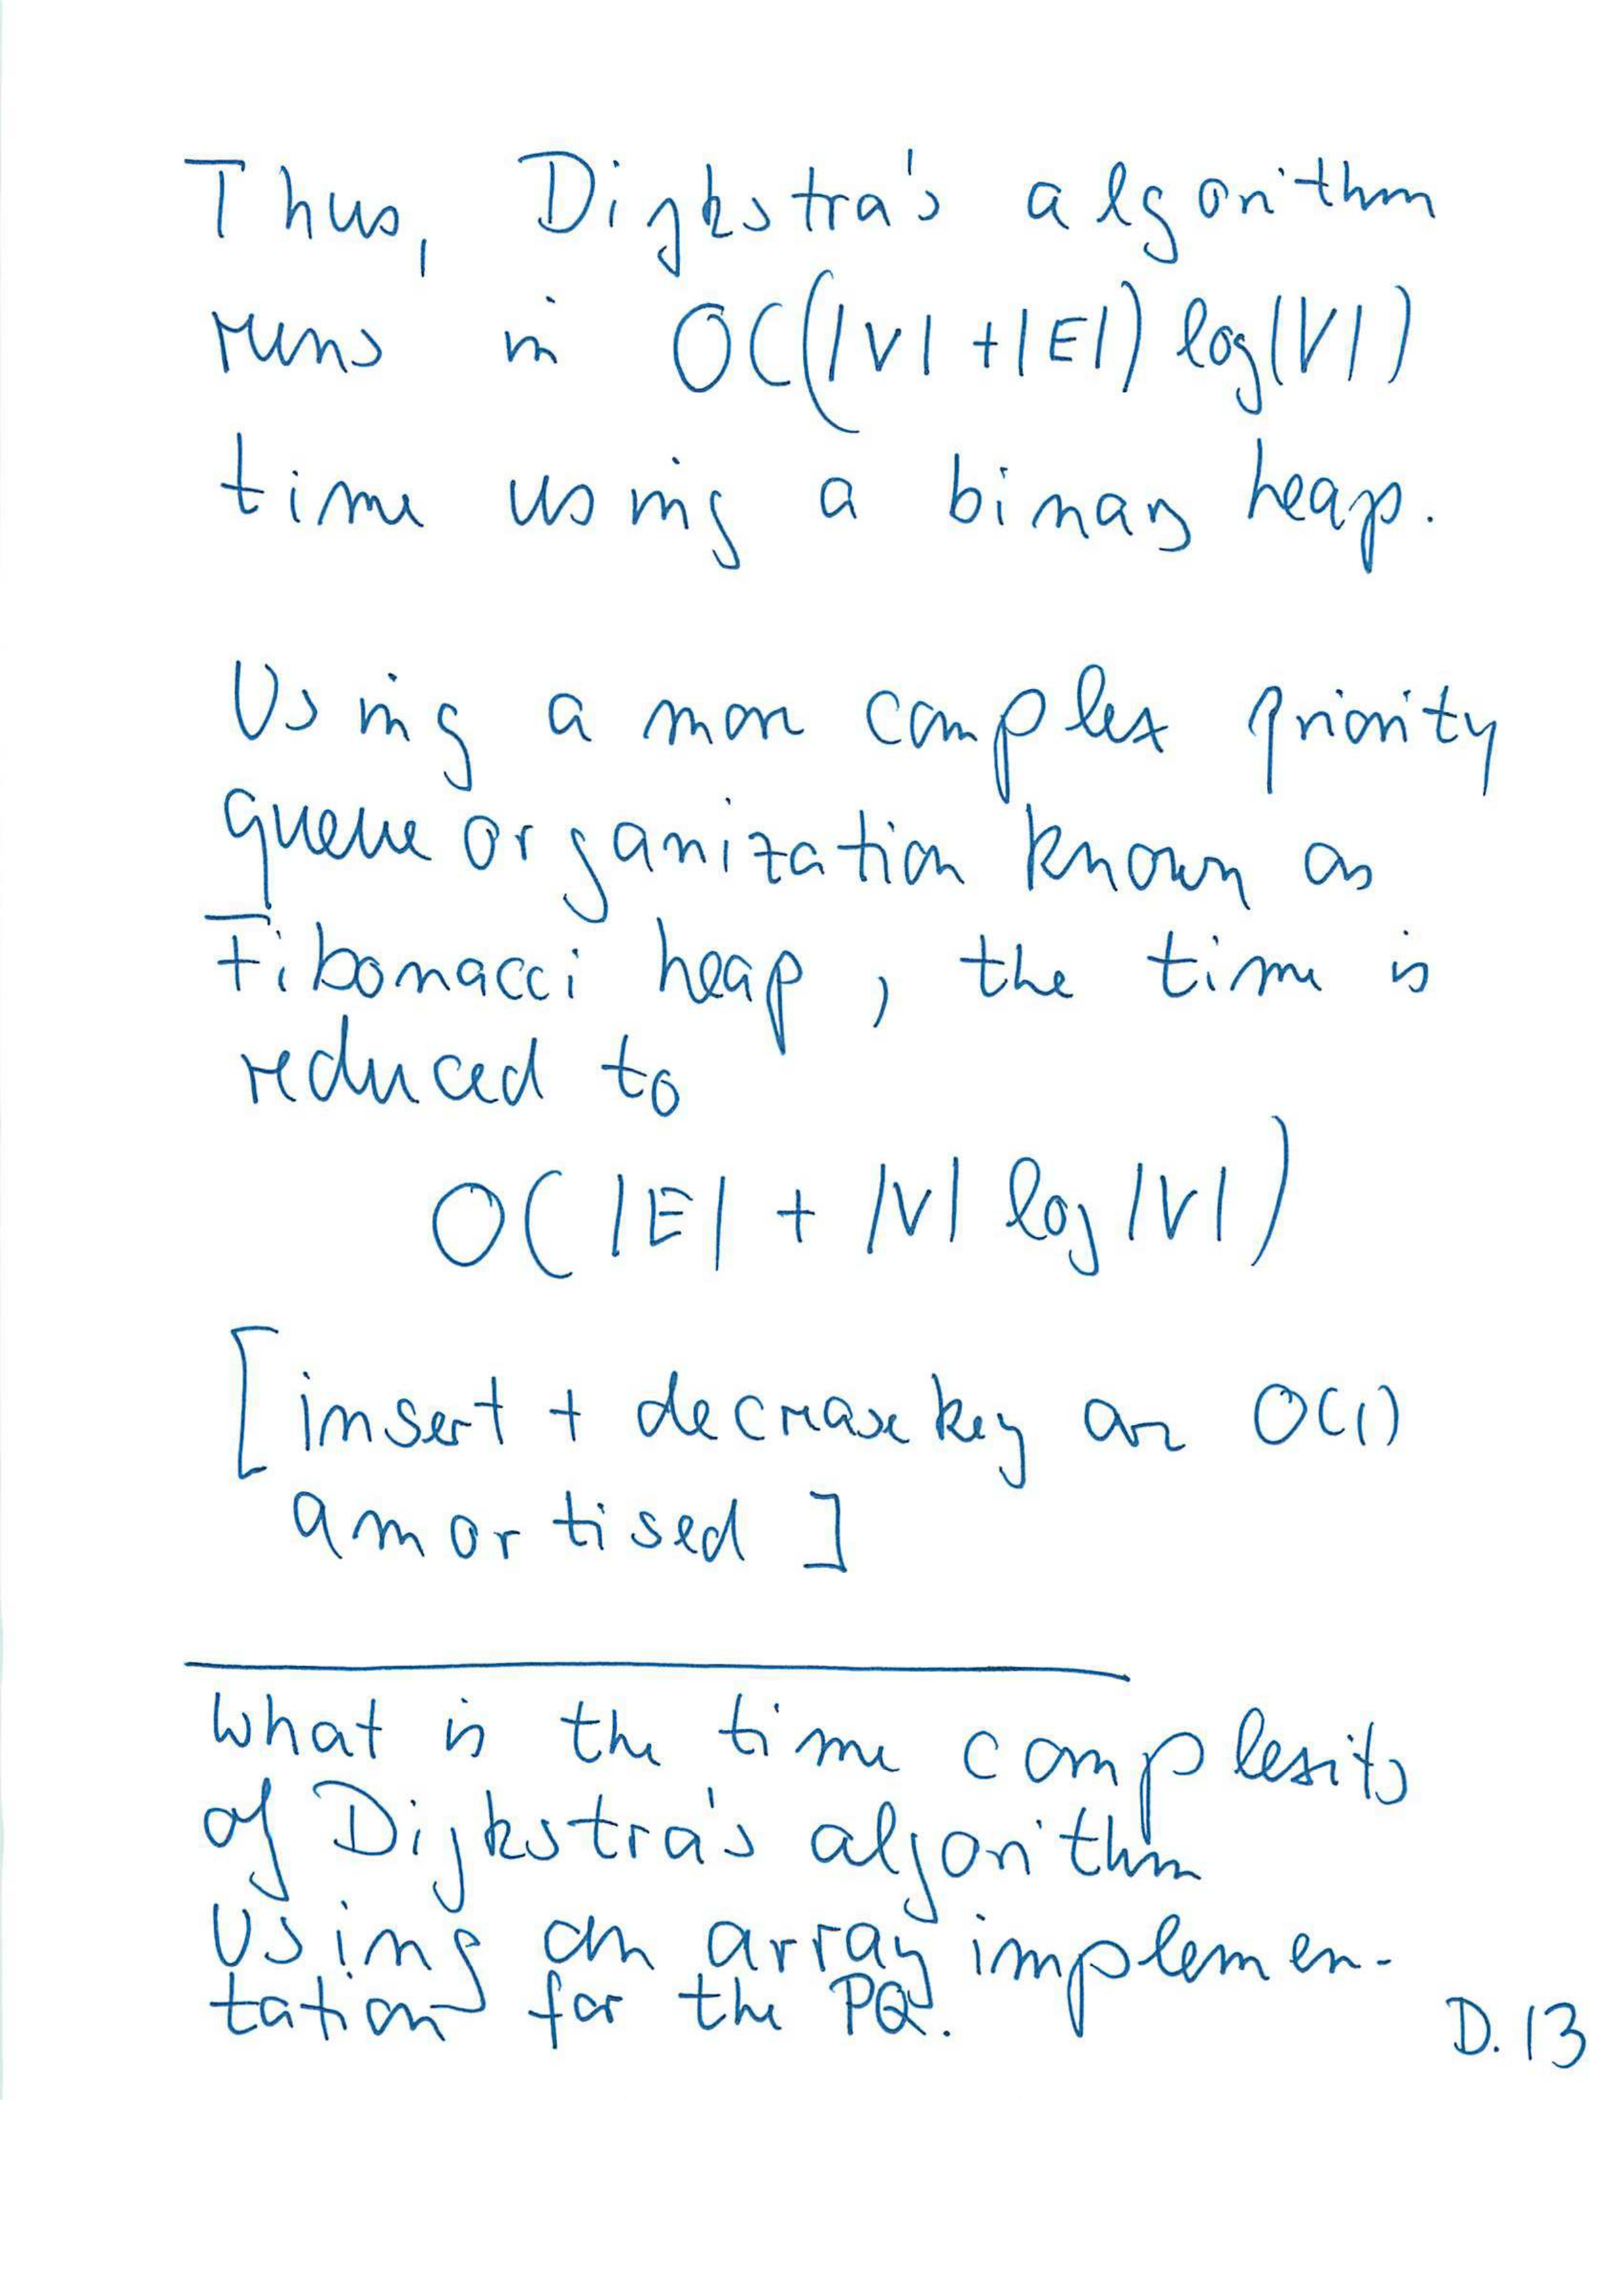 Thus, Dijkstra's algorithm
runs in O((|V| + |E|) log |V|)
time using a binary heap.
Using a more complex priority
queue organization known as
Fibonacci heap, the time is
reduced to
O( |E| + |V| log |V| )
[ insert + decrease key are O(1)
amortised ]
What is the time complexity
of Dijkstra's algorithm
using an array implemen-
tation for the PQ.
D.13